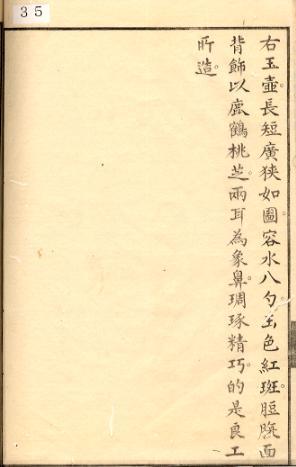 35
右玉壺。長短廣狹如圖。容水八勺。玉色紅斑。脰腹面
背飾以鹿鶴桃芝。兩耳為象鼻。琱琢精巧。的是良工
所造。